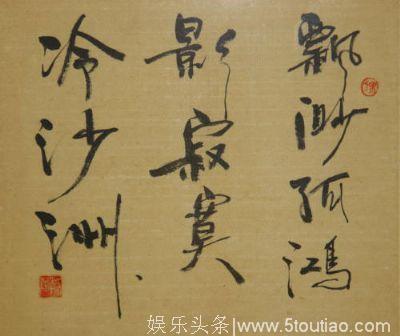 飄渺孤鴻
影寂寞
冷沙洲
娱乐头条
www.5toutiao.com